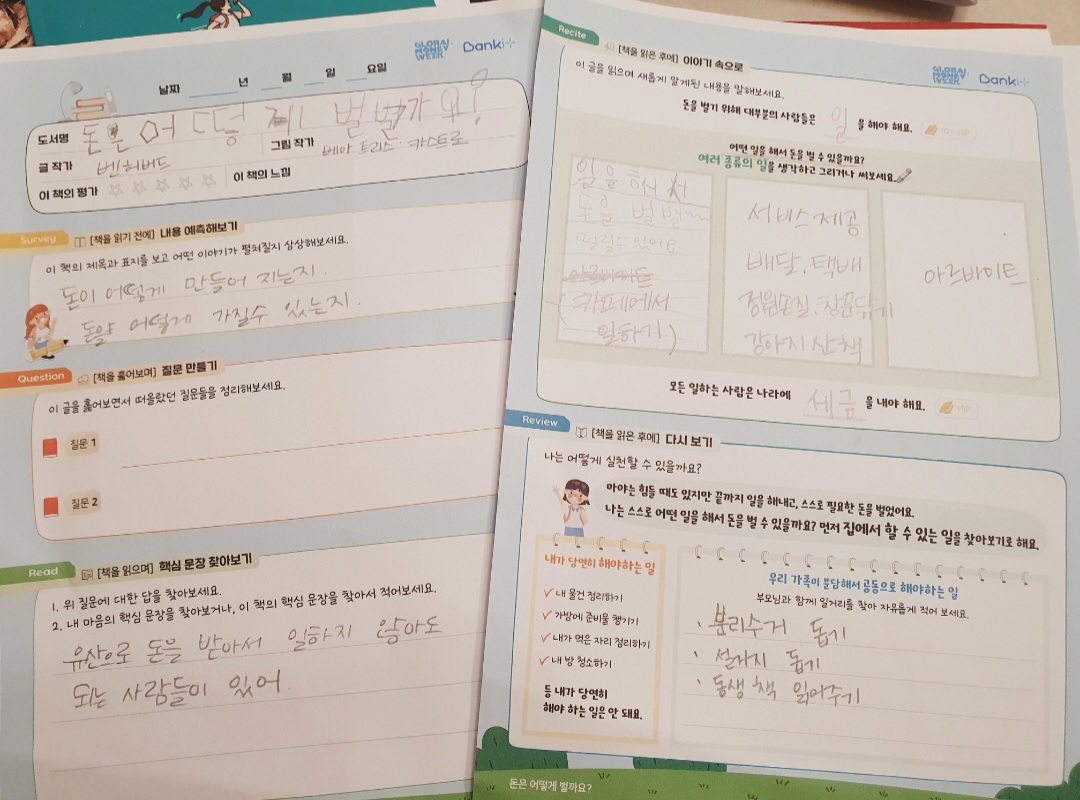 GLOBAL
MONEY
WEEK
Banki
날짜 년 월 일 요일
도서명 돈은 어떻게 벌까요?
글 작가 벤 허버드
그림 작가 베아트리스·카스트로
이 책의 평가 ☆☆☆☆☆ 이 책의 느낌
Survey
[책을 읽기 전에] 내용 예측해보기
이 책의 제목과 표지를 보고 어떤 이야기가 펼쳐질지 상상해보세요.
돈이 어떻게 만들어 지는지.
돈을 어떻게 가질수 있는지.
Question
[책을 훑어보며] 질문 만들기
이 글을 훑어보면서 떠올랐던 질문들을 정리해보세요.
질문 1
질문 2
Read
[책을 읽으며] 핵심 문장 찾아보기
1. 위 질문에 대한 답을 찾아보세요.
2. 내 마음의 핵심 문장을 찾아보거나, 이 책의 핵심 문장을 찾아서 적어보세요.
유산으로 돈을 받아서 일하지 않아도
되는 사람들이 있어.
Recite
[책을 읽은 후에] 이야기 속으로
GLOBAL
MONEY
WEEK
Banki
이 글을 읽으며 새롭게 알게된 내용을 말해보세요.
돈을 벌기 위해 대부분의 사람들은 일 을 해야 해요.
어떤 일을 해서 돈을 벌 수 있을까요?
여러 종류의 일을 생각하고 그리거나 써보세요.
일을 해서
돈을 벌
(카페에서
일하기)
서비스제공
배달.택배
정원손질.창문닦기
강아지 산책
아르바이트
모든 일하는 사람은 나라에 세금 을 내야 해요.
Review
[책을 읽은 후에] 다시 보기
나는 어떻게 실천할 수 있을까요?
마야는 힘들 때도 있지만 끝까지 일을 해내고, 스스로 필요한 돈을 벌었어요.
나는 스스로 어떤 일을 해서 돈을 벌 수 있을까요? 먼저 집에서 할 수 있는 일을 찾아보기로 해요.
내가 당연히 해야하는 일
내 물건 정리하기
가방에 준비물 챙기기
내가 먹은 자리 정리하기
내 방 청소하기
등 내가 당연히
해야 하는 일은 안 돼요.
우리 가족이 분담해서 공동으로 해야하는 일
부모님과 함께 일거리를 찾아 자유롭게 적어 보세요.
· 분리수거 돕기
· 설거지 돕기
· 동생 책 읽어주기
돈은 어떻게 벌까요?